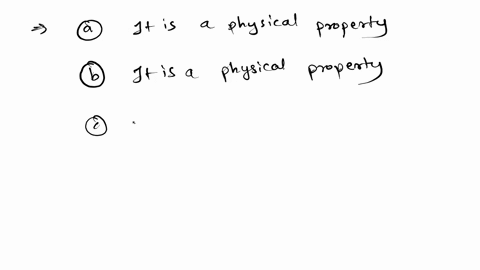 ⇒ ⓐ It is a physical property
ⓑ It is a physical property
ⓒ